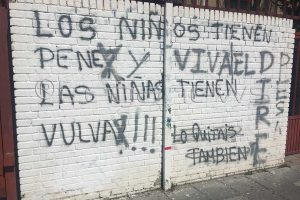 LOS NIÑOS TIENEN
PENE Y VIVA EL
LAS NIÑAS TIENEN
VULVA !!!!
Lo Quitais
TAMBIEN